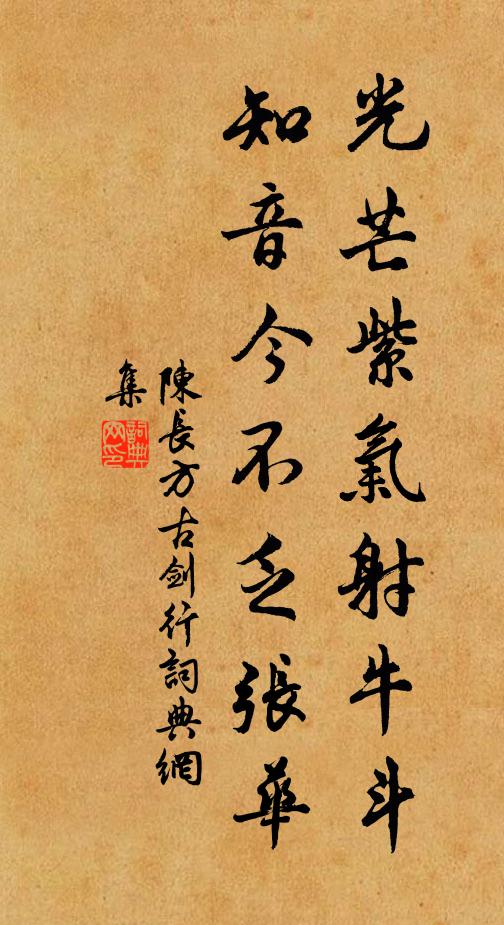 光芒紫氣射牛斗
知音今不乏張華
陳長方古劍行詞典網
集
詞典
网印